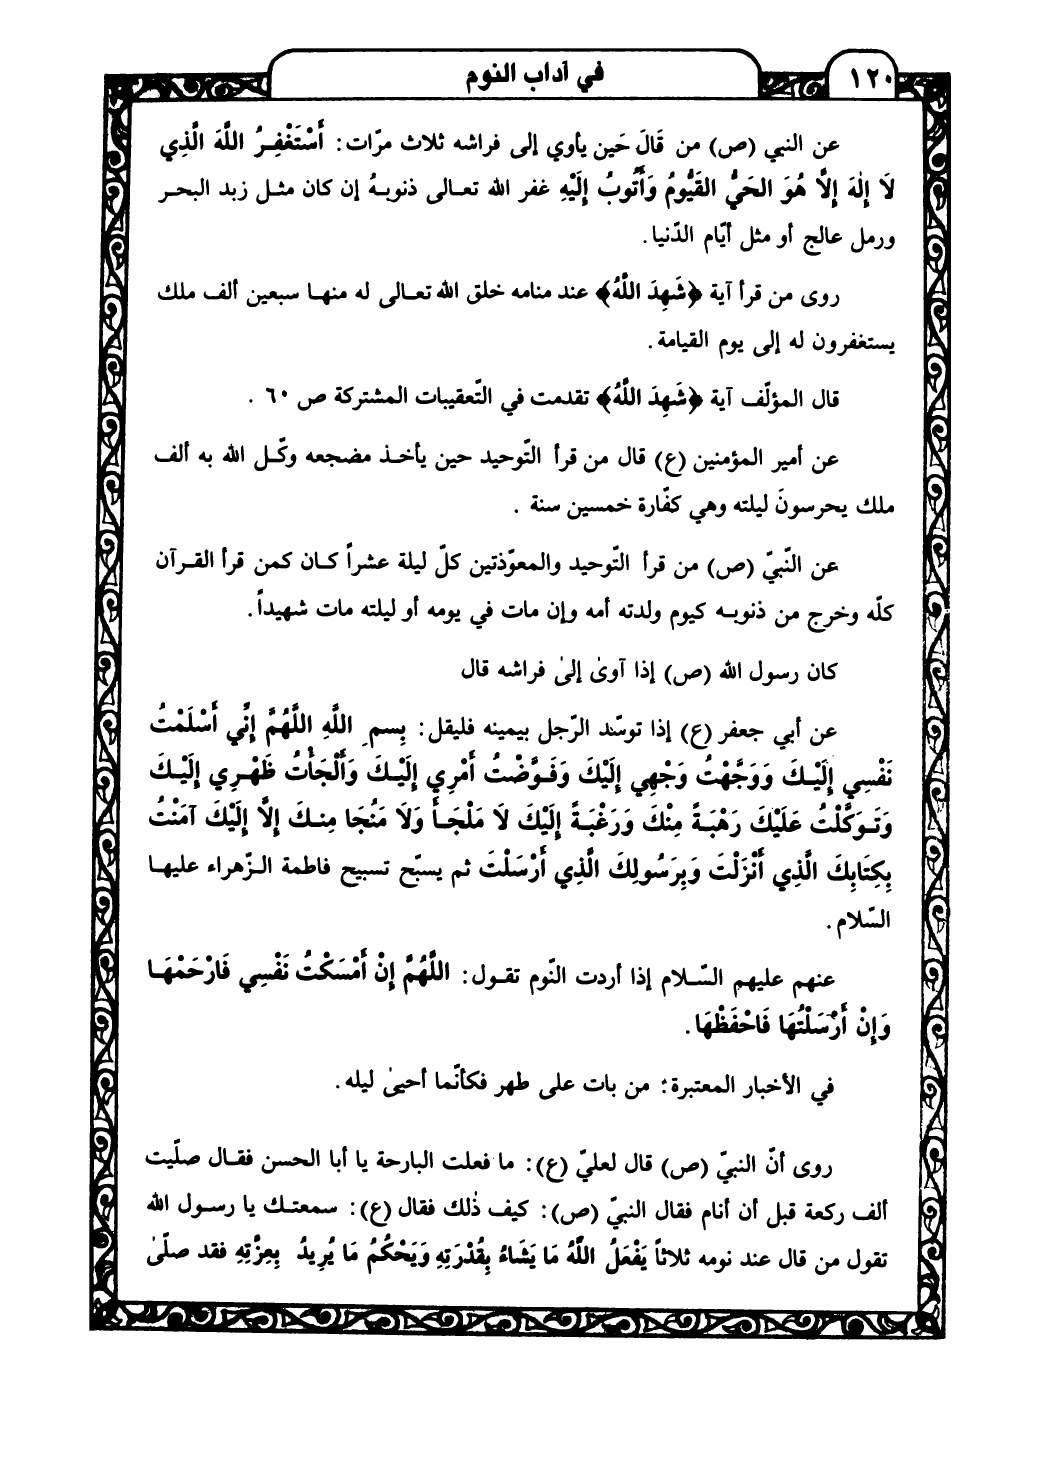 ١٢٠
في آداب النوم
عن النبي (ص) من قَالَ حَين يأوي إلى فراشه ثلاث مرّات: أَسْتَغْفِرُ اللَّهَ الَّذِي
لاَ إِلٰهَ إِلَّا هُوَ الحَيُّ القَيُّومُ وَأَتُوبُ إِلَيْهِ غفر الله تعالى ذنوبهُ إن كان مثل زبد البحر
ورمل عالج أو مثل أيّام الدّنيا.
روى من قرأ آية ﴿شَهِدَ اللَّهُ﴾ عند منامه خلق الله تعالى له منها سبعين ألف ملك
يستغفرون له إلى يوم القيامة.
قال المؤلّف آية ﴿شَهِدَ اللَّهُ﴾ تقدمت في التّعقيبات المشتركة ص ٦٠ .
عن أمير المؤمنين (ع) قال من قرأ التّوحيد حين يأخذ مضجعه وكّل الله به ألف
ملك يحرسونَ ليلته وهي كفّارة خمسين سنة .
عن النّبيّ (ص) من قرأ التّوحيد والمعوّذتين كلّ ليلة عشراً كان كمن قرأ القرآن
كلّه وخرج من ذنوبه كيوم ولدته أمه وإن مات في يومه أو ليلته مات شهيداً.
كان رسول الله (ص) إذا آوىٰ إلىٰ فراشه قال
عن أبي جعفر (ع) إذا توسّد الرّجل بيمينه فليقل: بِسمِ اللَّهِ اللَّهُمَّ إِنِّي أَسْلَمْتُ
نَفْسِي إِلَيْكَ وَوَجَّهْتُ وَجْهِي إِلَيْكَ وَفَوَّضْتُ أَمْرِي إِلَيْكَ وَأَلْجَأْتُ ظَهْرِي إِلَيْكَ
وَتَوَكَّلْتُ عَلَيْكَ رَهْبَةً مِنْكَ وَرَغْبَةً إِلَيْكَ لاَ مَلْجَأَ وَلاَ مَنْجَا مِنكَ إِلَّا إِلَيْكَ آمَنْتُ
بِكِتَابِكَ الَّذِي أَنْزَلْتَ وَبِرَسُولِكَ الَّذِي أَرْسَلْتَ ثم يسبّح تسبيح فاطمة الزّهراء عليها
السّلام.
عنهم عليهم السّلام إذا أردت النّوم تقول: اللَّهُمَّ إِنْ أَمْسَكْتُ نَفْسِي فَارْحَمْهَا
وَإِنْ أَرْسَلْتُهَا فَاحْفَظْهَا.
في الأخبار المعتبرة؛ من بات على طهر فكأنّما أحيىٰ ليله.
روى أنّ النبيّ (ص) قال لعليّ (ع): ما فعلت البارحة يا أبا الحسن فقال صلّيت
ألف ركعة قبل أن أنام فقال النبيّ (ص): كيف ذٰلك فقال (ع): سمعتك يا رسول الله
تقول من قال عند نومه ثلاثاً يَفْعَلُ اللَّهُ مَا يَشَاءُ بِقُدْرَتِهِ وَيَحْكُمُ مَا يُرِيدُ بِعِزَّتِهِ فقد صلّىٰ